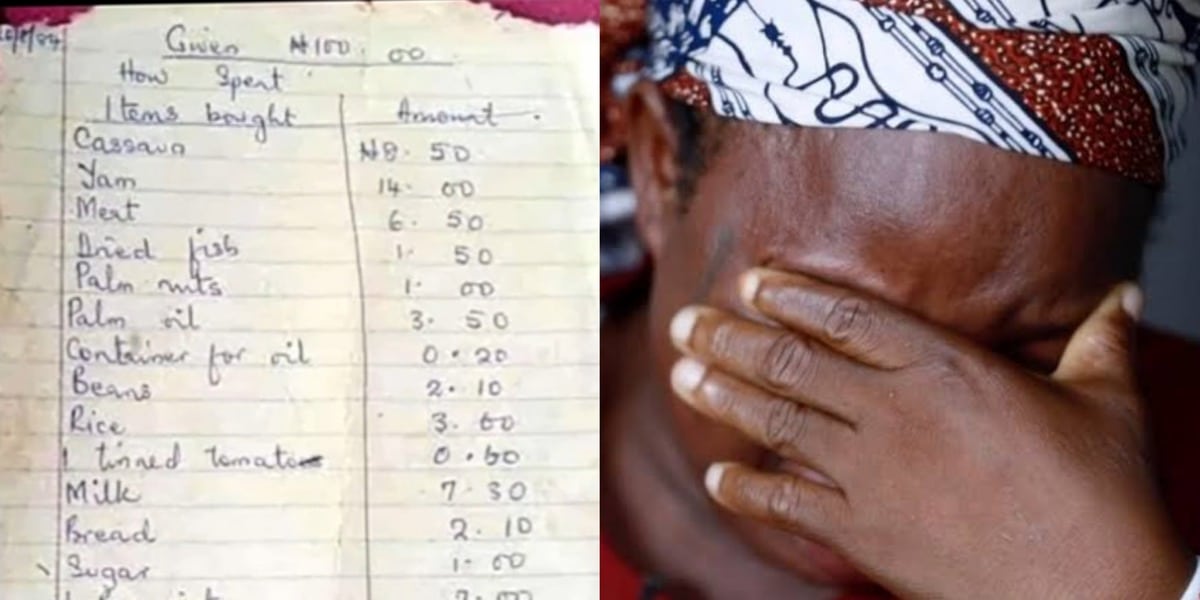 Given ₦100. 00
How Spent
Items bought Amount.
Cassava ₦8. 50
Yam 14. 00
Meat 6. 50
Dried fish 1. 50
Palm nuts 1. 00
Palm oil 3. 50
Container for oil 0.20
Beans 2. 10
Rice 3. 60
1 tinned tomato 0.60
Milk 7. 30
Bread 2. 10
Sugar 1. 00